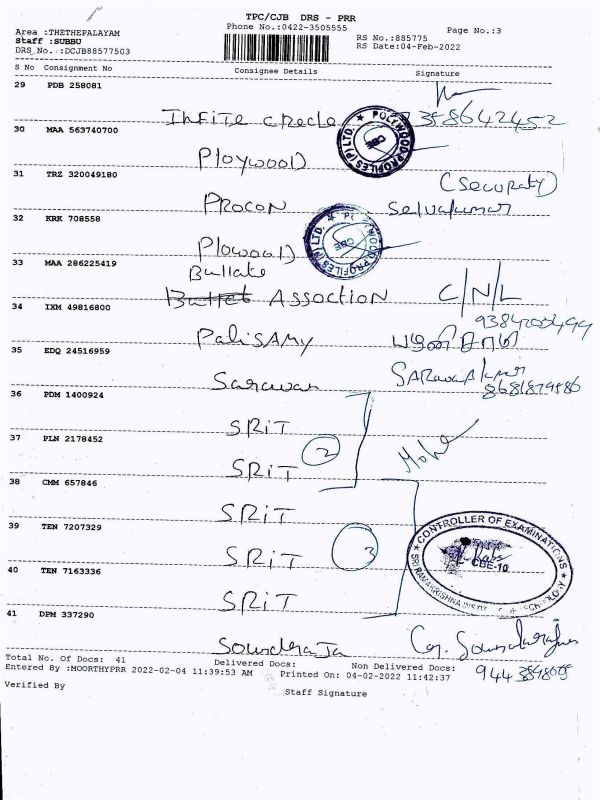 TPC/CJB DRS - PRR
Phone No.:0422-3505555
Page No.:3
Area :THETHEPALAYAM
Staff :SUBBU
DRS_No. :DCJB88577503
RS No.:885775
RS Date:04-Feb-2022
S No Consignment No Consignee Details Signature
29 PDB 258081
Infite creche 358642452
30 MAA 563740700
Ploywood
POLYWOOD PROFILES (P) LTD. CBE
31 TRZ 320049180
(Security)
Procon Selvakumar
32 KRK 708558
Plowood
PROFILES (P) LTD. CBE
33 MAA 286225419
Bullate
Assoction C/N/L
34 IXM 49816800
Palisamy பழனிசாமி
35 EDQ 24516959
Saravan Saravanakumar
8681879586
36 PDM 1400924
SRIT
37 PLN 2178452
2
SRIT
38 CMM 657846
SRIT
39 TEN 7207329
3
SRIT
CONTROLLER OF EXAMINATIONS
CBE-10
40 TEN 7163336
SRIT
41 DPM 337290
Soundraja
Total No. Of Docs: 41 Delivered Docs: Non Delivered Docs:
Entered By :MOORTHYPRR 2022-02-04 11:39:53 AM Printed On: 04-02-2022 11:42:37
Verified By
Staff Signature